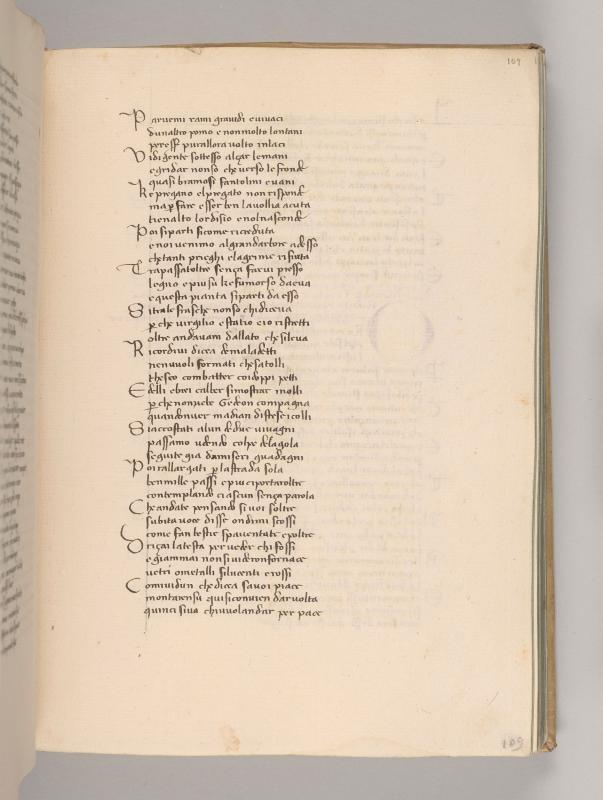 109
Parvemi rami gravidi e vivaci
dunaltro pomo e non molto lontani
per esser pur allora volto in laci
Vidi gente sottesso alçar le mani
e gridar non so che verso le fronde
quasi bramosi fantolini e vani
Ke pregano el pregato non risponde
ma per fare esser ben la voglia acuta
tien alto lor disio e nol nasconde
Poi si parti si come ricreduta
e noi venimo al grand arbore adesso
che tanti prieghi e lagrime rifiuta
Trapassate oltre sença farvi presso
legno e piu su ke fu morso da eva
e questa pianta si parti da esso
Si tra le frasche non so chi diceva
per che virgilio e statio e io ristretti
oltre andavam dal lato che si leva
Ricordivi dicea de maladetti
ne nuvoli formati che satolli
theseo combatter co doppi petti
E delli ebrei calber si mostrar molli
per che non volle Gedeon compagna
quando inver madian discese i colli
Si accostati a lun de due vivagni
passamo udendo colpe de la gola
seguite gia da miseri guadagni
Poi rallargati per la strada sola
ben mille passi e piu ci portar oltre
contemplando ciascun sença parola
Che andate pensando si voi sol tre
subita voce disse ond i mi scossi
come fan bestie spaventate e poltre
Driçai la testa per veder chi fossi
e giammai non si videro in fornace
vetri o metalli si lucenti e rossi
Com i vidi un che dicea sa voi piace
montare in su qui si convien dar volta
quinci si va chi vuol andar per pace
109